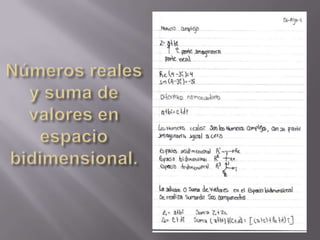 Números reales
y suma de
valores en
espacio
bidimensional.
Número complejo
Z= a+bi
parte imaginaria
parte real
Re(4-3i)=4
(4-3i)=-3i
Diferentes nomenclaturas
a+bi = c+di
Los Números reales son los números complejos, con su parte
imaginaria igual a cero.
Espacio unidimensional R¹
Espacio bidimensional R²
Espacio tridimensional R³
La adición o Suma de valores en el Espacio bidimensional
se realiza sumando sus componentes
Z₁= a+bi Suma Z₁+Z₂
Z₂= c+di Suma (a+bi)+(c+di) =